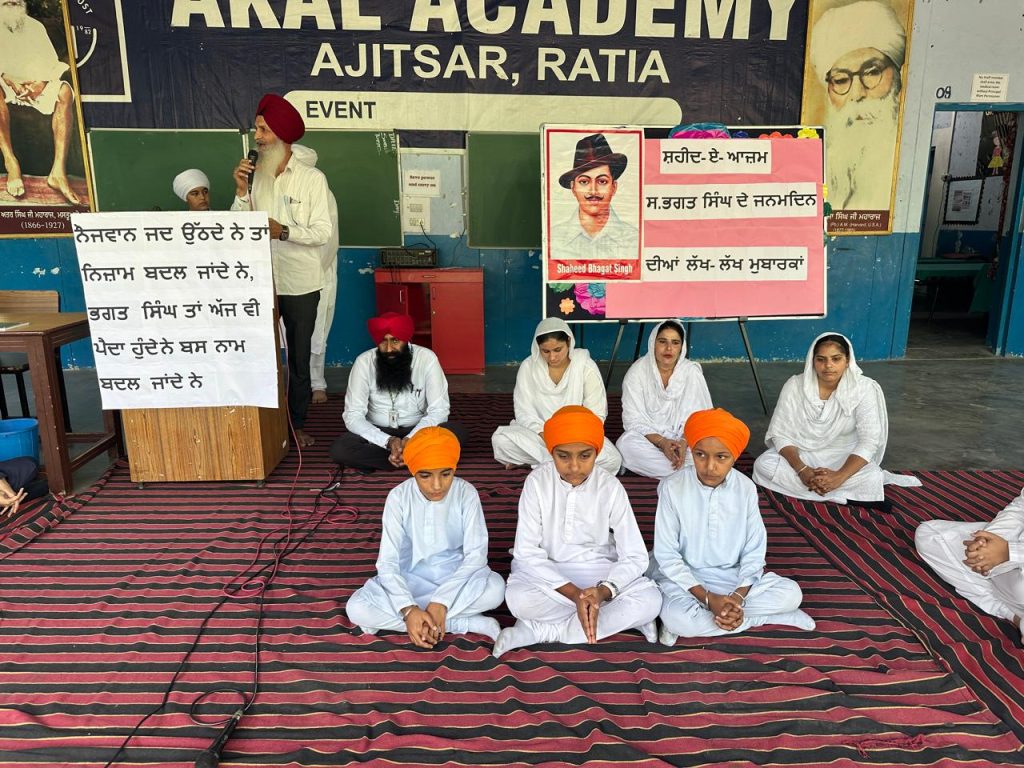 AKAL ACADEMY
AJITSAR, RATIA
EVENT
ਨੌਜਵਾਨ ਜਦ ਉੱਠਦੇ ਨੇ ਤਾਂ
ਨਿਜ਼ਾਮ ਬਦਲ ਜਾਂਦੇ ਨੇ,
ਭਗਤ ਸਿੰਘ ਤਾਂ ਅੱਜ ਵੀ
ਪੈਦਾ ਹੁੰਦੇ ਨੇ ਬਸ ਨਾਮ
ਬਦਲ ਜਾਂਦੇ ਨੇ
ਸ਼ਹੀਦ-ਏ- ਆਜ਼ਮ
ਸ.ਭਗਤ ਸਿੰਘ ਦੇ ਜਨਮਦਿਨ
ਦੀਆਂ ਲੱਖ- ਲੱਖ ਮੁਬਾਰਕਾਂ
Shaheed Bhagat Singh
ਅਤਰ ਸਿੰਘ ਜੀ ਮਹਾਰਾਜ, ਮਸਤੂ
(1866-1927)
ਸਿੰਘ ਜੀ ਮਹਾਰਾਜ
09